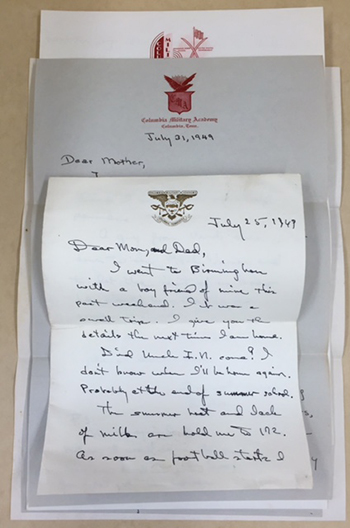 Columbia Military Academy
Columbia, Tenn.
July 21, 1949
Dear Mother,
July 25, 1949
Dear Mom, and Dad,
I went to Birmingham
with a boy friend of mine this
past weekend. It was a
swell time. I give you the
details the next time I am home.
Did Uncle I.N. come? I
don't know when I'll be home again.
Probably at the end of summer school.
The summer heat and lack
of milk are hold me to 172.
As soon as football starts I